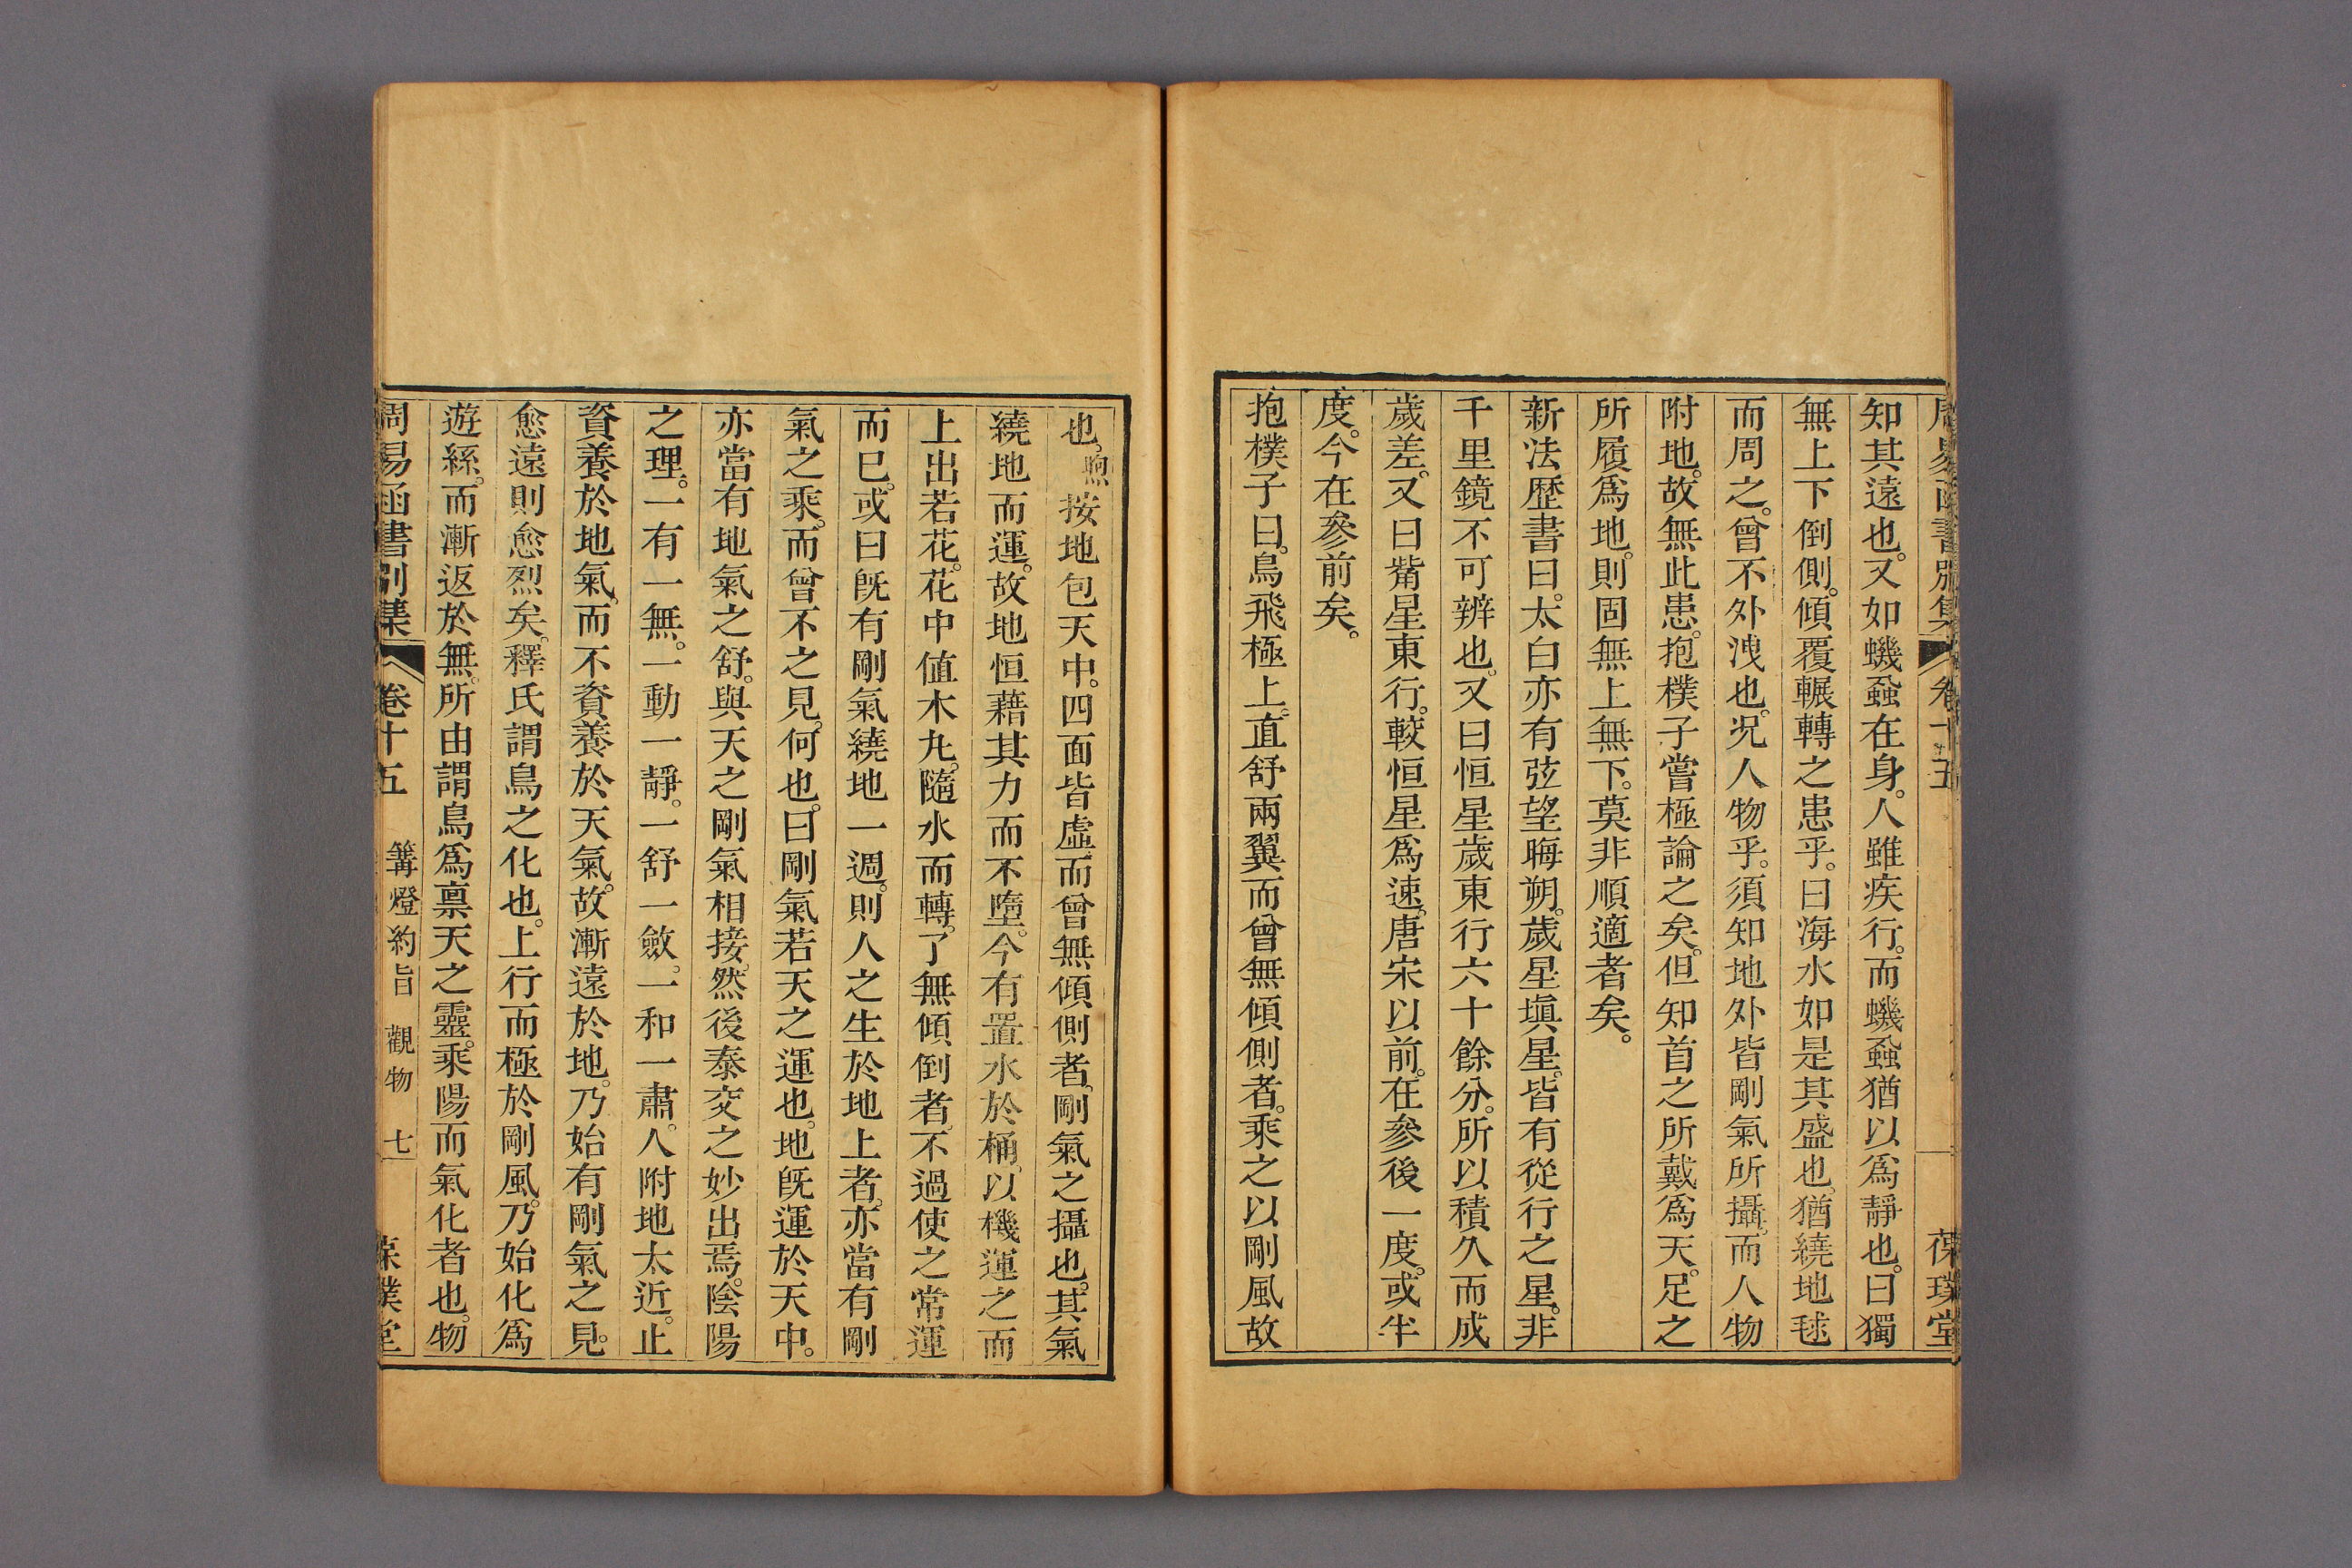 周易函書別集 卷十五 葆璞堂
知其遠也。又如蟣蝨在身。人雖疾行。而蟣蝨猶以爲靜也。曰獨
無上下倒側。傾覆輾轉之患乎。曰海水如是其盛也。猶繞地毬
而周之。曾不外洩也。況人物乎。須知地外皆剛氣所攝。而人物
附地。故無此患。抱樸子嘗極論之矣。但知首之所戴爲天。足之
所履爲地。則固無上無下。莫非順適者矣。
新法歷書曰。太白亦有弦望晦朔。歲星塡星。皆有從行之星。非
千里鏡不可辨也。又曰恒星歲東行六十餘分。所以積久而成
歲差。又曰觜星東行。較恒星爲速。唐宋以前。在參後一度。或半
度。今在參前矣。
抱樸子曰。鳥飛極上。直舒兩翼。而曾無傾側者。乘之以剛風故
也。煦按地包天中。四面皆虛。而曾無傾側者。剛氣之攝也。其氣
繞地而運。故地恒藉其力而不墮。今有置水於桶。以機運之而
上出若花。花中值木丸。隨水而轉。了無傾倒者。不過使之常運
而巳。或曰旣有剛氣繞地一週。則人之生於地上者。亦當有剛
氣之乘。而曾不之見。何也。曰剛氣若天之運也。地旣運於天中。
亦當有地氣之舒。與天之剛氣相接。然後泰交之妙出焉。陰陽
之理。一有一無。一動一靜。一舒一斂。一和一肅。人附地太近。止
資養於地氣。而不資養於天氣。故漸遠於地。乃始有剛氣之見。
愈遠則愈烈矣。釋氏謂鳥之化也。上行而極於剛風。乃始化爲
遊絲。而漸返於無。所由謂鳥爲禀天之靈。乘陽而氣化者也。物
周易函書別集 卷十五 篝燈約旨 觀物 七 葆璞堂